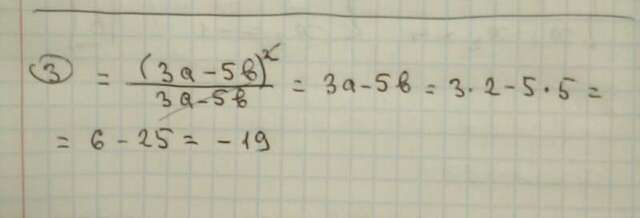 ③ = (3a-5b)²/(3a-5b) = 3a-5b = 3·2-5·5 =
= 6-25 = -19